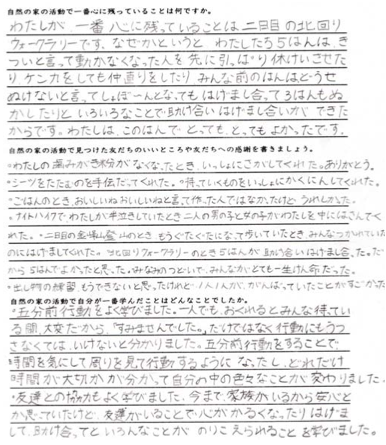 自然の家の活動で一番心に残っていることは何ですか。
わたしが一番心に残っていることは二日目の北回り
ウォークラリーです。なぜかというとわたしたち5はんはき
ついと言って動かなくなった人を先に引っぱり休けいさせた
りケンカをしても仲直りをしたりみんな前のはんはどうせ
ぬけないと言ってしょぼーんとなってもはげまし合って3はんもぬ
かしたりといろいろなことで助け合いはげまし合いができた
からです。わたしは、このはんでとっても、とってもよかったです。
自然の家の活動で見つけた友だちのいいところや友だちへの感謝を書きましょう。
・わたしの歯みがき粉がなくなったとき、いっしょにさがしてくれた。ありがとう。
・シーツをたたむのを手伝ってくれた。・持っていくものをいっしょにかくにんしてくれた。
・ごはんのとき、おいしいねおいしいねと言って作った人ではなかったけどうれしかった。
・ナイトハイクでわたしが半泣きしていたとき二人の男の子と女の子がわたしを中にはさんでく
れた。・二日目の金場山登山のときもうぐたぐたになって歩いていたとき、みんなつかれていた
のにはげましてくれた。・北回りウォークラリーのとき5はんが助け合いはげまし合った。だ
から5はんでよかったと思った。・みなみのつどいで、みんながとても一生けん命だった。
・出し物の練習もうできないと思ったけれど一人一人が、がんばっていたことがすごかった
自然の家の活動で自分が一番学んだことはどんなことでしたか。
・五分前行動をよく学びました。一人でも、おくれるとみんな待ってい
る間、大変だから、「すみませんでした。」だけではなく行動にもうつ
さなくては、いけないと分かりました。五分前行動をすることで、
時間を気にして周りを見て行動するようになったし、どれだけ
時間が大切かが分かって自分の中の色々なことが変わりました。
・友達との協力もよく学びました。今まで家族がいるから安心と
か思っていたけど、友達がいることで心がかるくなったりはげま
して、助け合ってといろんなことがのりこえられることを学びました。